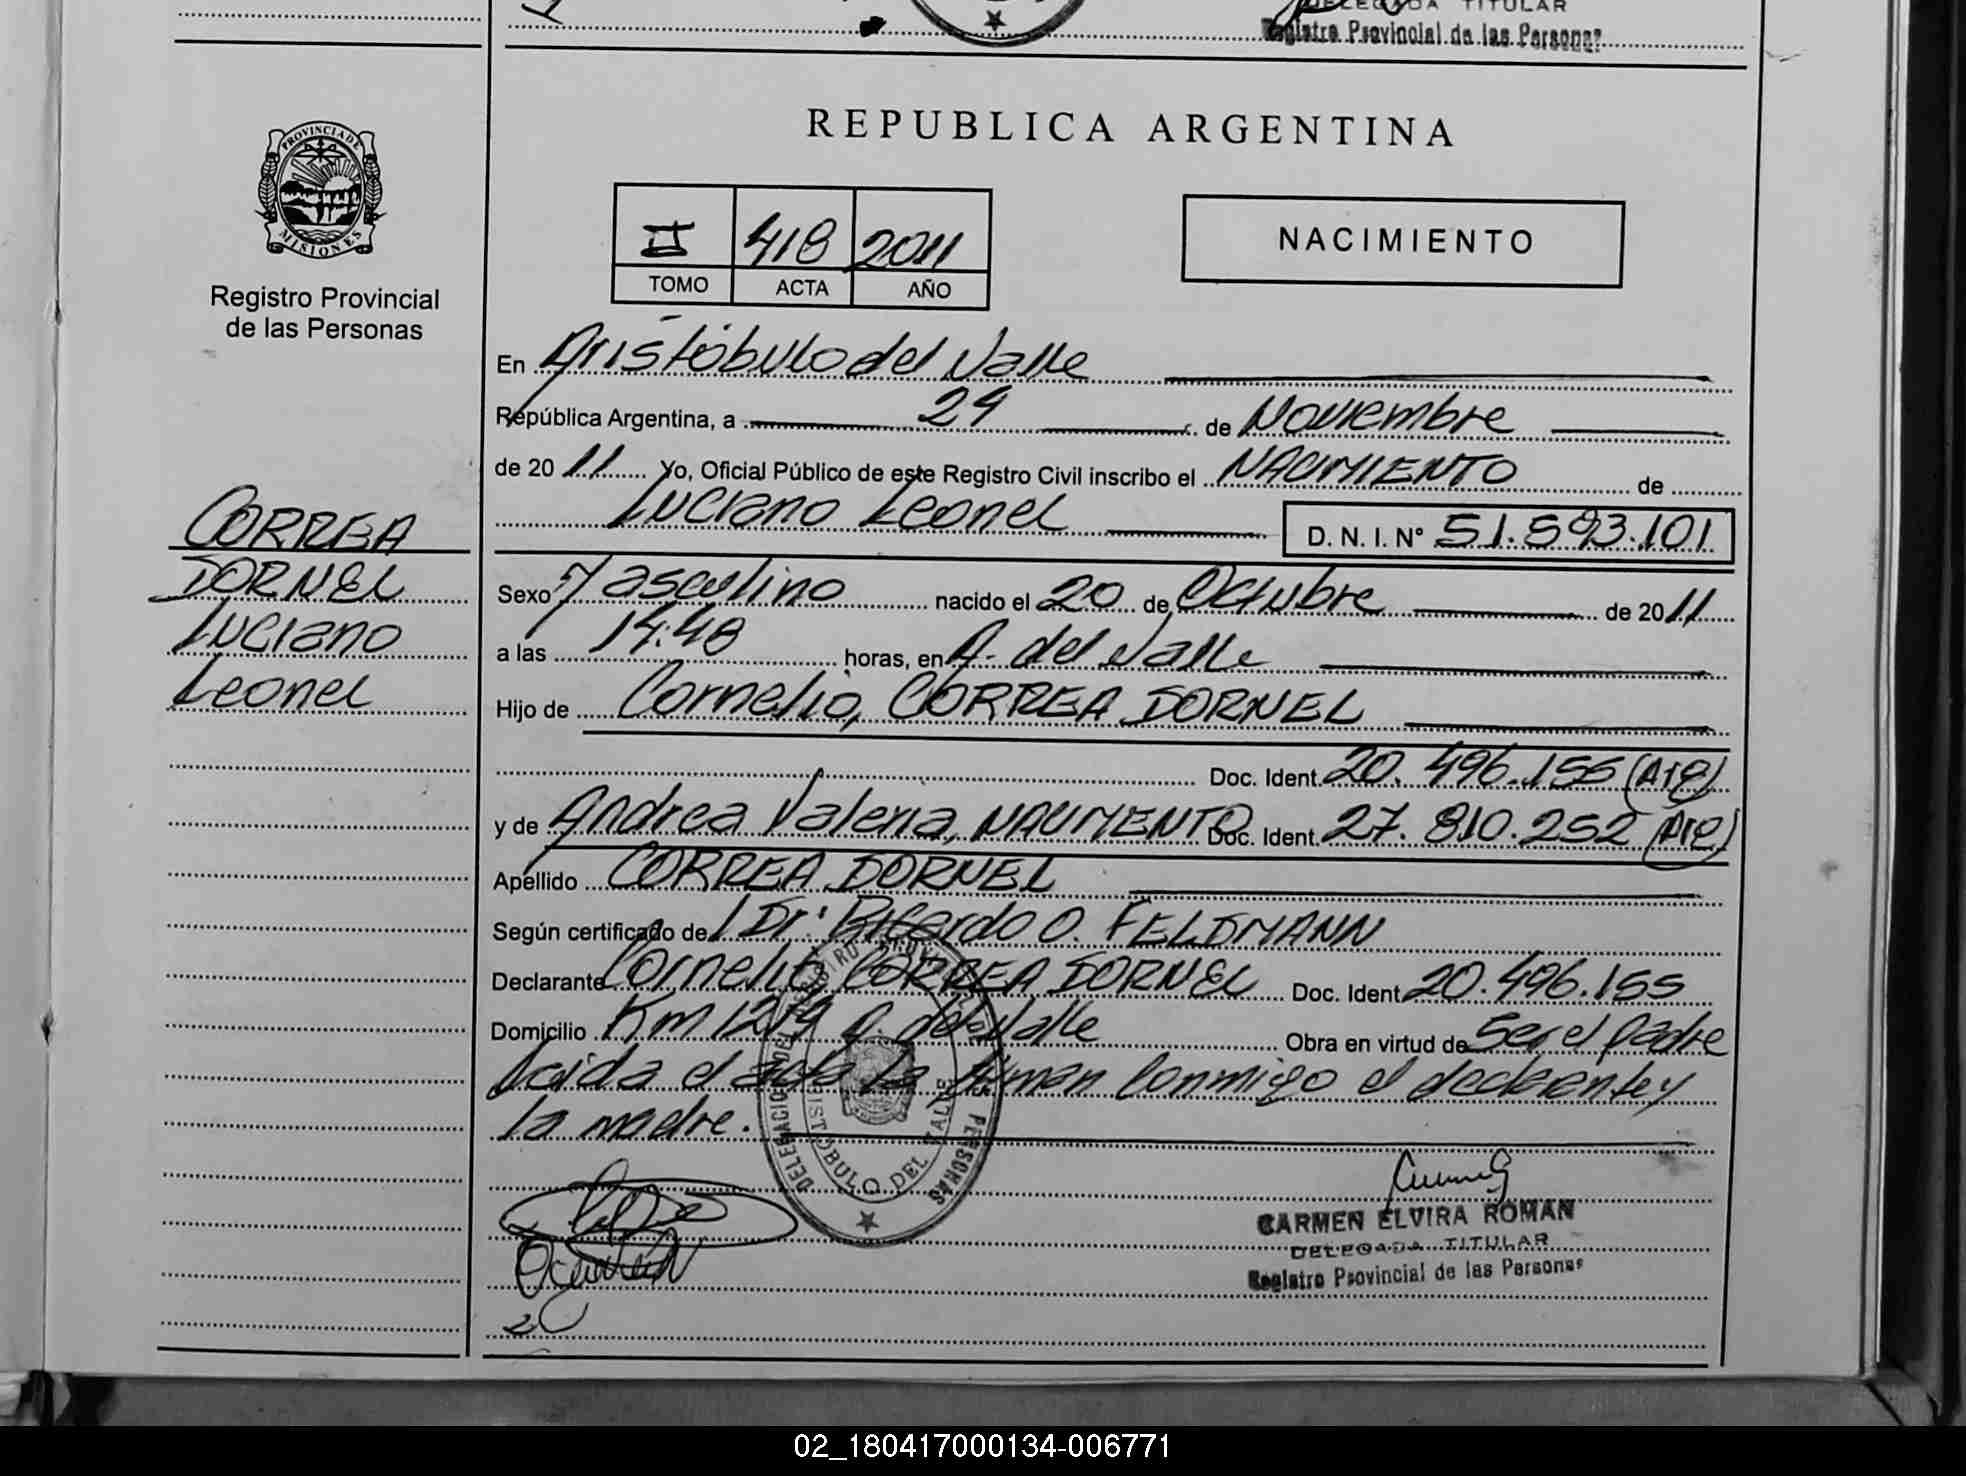 DELEGADA TITULAR
Registro Provincial de las Personas
PROVINCIA DE MISIONES
Registro Provincial
de las Personas
REPUBLICA ARGENTINA
II 418 2011
TOMO ACTA AÑO
NACIMIENTO
En Aristóbulo del Valle
República Argentina, a 24 de Noviembre
de 2011 Yo, Oficial Público de este Registro Civil inscribo el NACIMIENTO de
Luciano Leonel D. N. I. N° 51.593.101
CORREA
DORNEL
Luciano
Leonel
Sexo Masculino nacido el 20 de Octubre de 2011
a las 14:48 horas, en A. del Valle
Hijo de Cornelio, CORREA DORNEL
Doc. Ident. 20.496.155 (Arg)
y de Andrea Valeria, NACIMENTO Doc. Ident. 27.810.252 (Arg)
Apellido CORREA DORNEL
Según certificado de Dr: Ricardo O. FELDMANN
Declarante Cornelio CORREA DORNEL Doc. Ident. 20.496.155
Domicilio Km 1279 A. del Valle Obra en virtud de Ser el padre
Leida el acta la firman conmigo el declarante y
la madre.
DELEGACION DEL REGISTRO PERSONAS
ARISTOBULO DEL VALLE
CARMEN ELVIRA ROMAN
DELEGADA TITULAR
Registro Provincial de las Personas
02_180417000134-006771